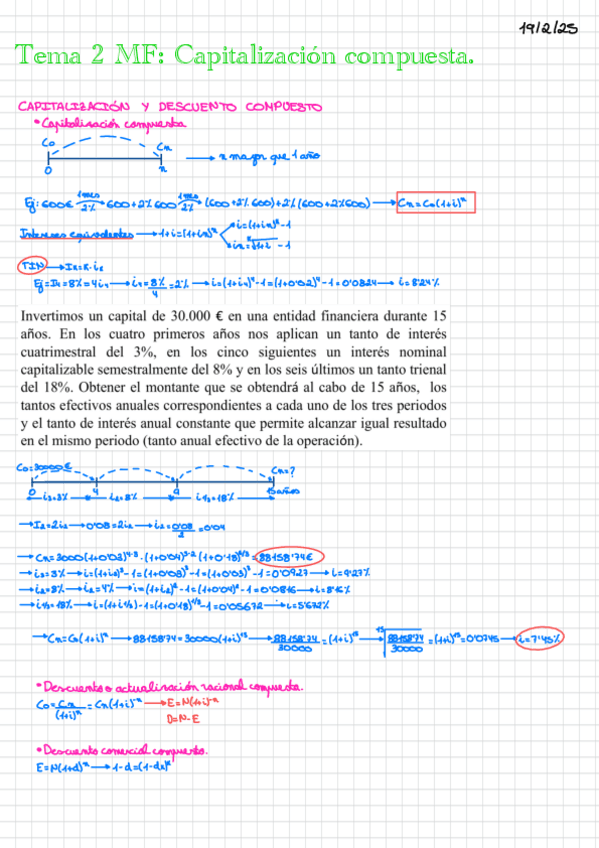 19/2/25
Tema 2 MF: Capitalización compuesta.
CAPITALIZACIÓN Y DESCUENTO COMPUESTO
• Capitalización compuesta
Co Cn
0 n → n mayor que 1 año
Ej: 600€ 1mes/2% → 600+2%600 1mes/2% → (600+2%600)+2%(600+2%600) → Cn=Co(1+i)ⁿ
Intereses equivalentes → 1+i=(1+iₖ)ᵏ → i=(1+iₖ)ᵏ-1
iₖ=ᵏ√1+i -1
TIN → Iₖ=k·iₖ
Ej=Iₖ=8%=4iₖ → iₖ=8%/4=2% → i=(1+iₖ)ᵏ-1=(1+0'02)⁴-1=0'0824 → i=8'24%
Invertimos un capital de 30.000 € en una entidad financiera durante 15
años. En los cuatro primeros años nos aplican un tanto de interés
cuatrimestral del 3%, en los cinco siguientes un interés nominal
capitalizable semestralmente del 8% y en los seis últimos un tanto trienal
del 18%. Obtener el montante que se obtendrá al cabo de 15 años, los
tantos efectivos anuales correspondientes a cada uno de los tres periodos
y el tanto de interés anual constante que permite alcanzar igual resultado
en el mismo periodo (tanto anual efectivo de la operación).
Co=30000€ Cn=?
0 4 9 15años
i₃=3% i₂=8% i₁/₃=18%
→ I₂=2i₂ → 0'08=2i₂ → i₂=0'08/2=0'04
→ Cn=3000(1+0'03)⁴·³·(1+0'04)⁵·²(1+0'18)⁶/³=88158'74€
→ i₃=3% → i=(1+i₃)³-1=(1+0'03)³-1=(1+0'03)³-1=0'0927 → i=9'27%
→ i₂=8% → i₂=4% → i=(1+i₂)²-1=(1+0'04)²-1=0'0816 → i=8'16%
→ i⅓=18% → i=(1+i⅓)-1=(1+0'18)¹/³-1=0'05672 → i=5'672%
→ Cn=Co(1+i)ⁿ → 88158'74=30000(1+i)¹⁵ → 88158'74/30000=(1+i)¹⁵ → ¹⁵√88158'74/30000=(1+i)¹⁵=0'0745 → i=7'45%
• Descuento o actualización racional compuesta.
Co=Cn/(1+i)ⁿ=Cn(1+i)⁻ⁿ → E=N(1+i)⁻ⁿ
D=N-E
• Descuento comercial compuesto.
E=N(1+d)ⁿ → 1-d=(1-dₖ)ᵏ